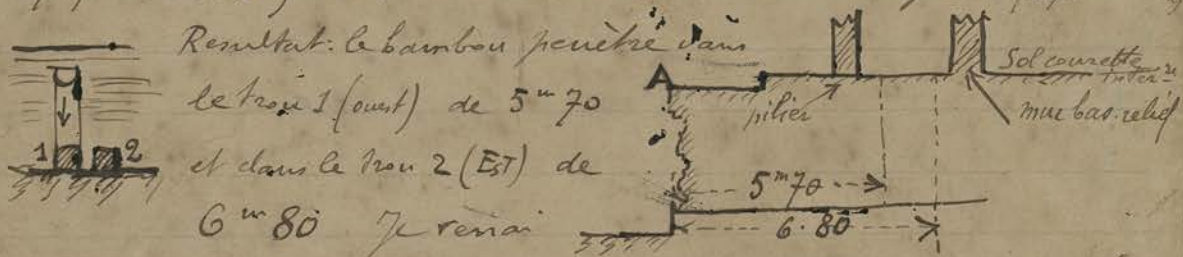 Resultat: le bambou penètre dans
le trou 1 (ouest) de 5m70
et dans le trou 2 (EST) de
6m80 Je
1 2
A
pilier
Sol courette
mur bas-relief
5m70
6.80